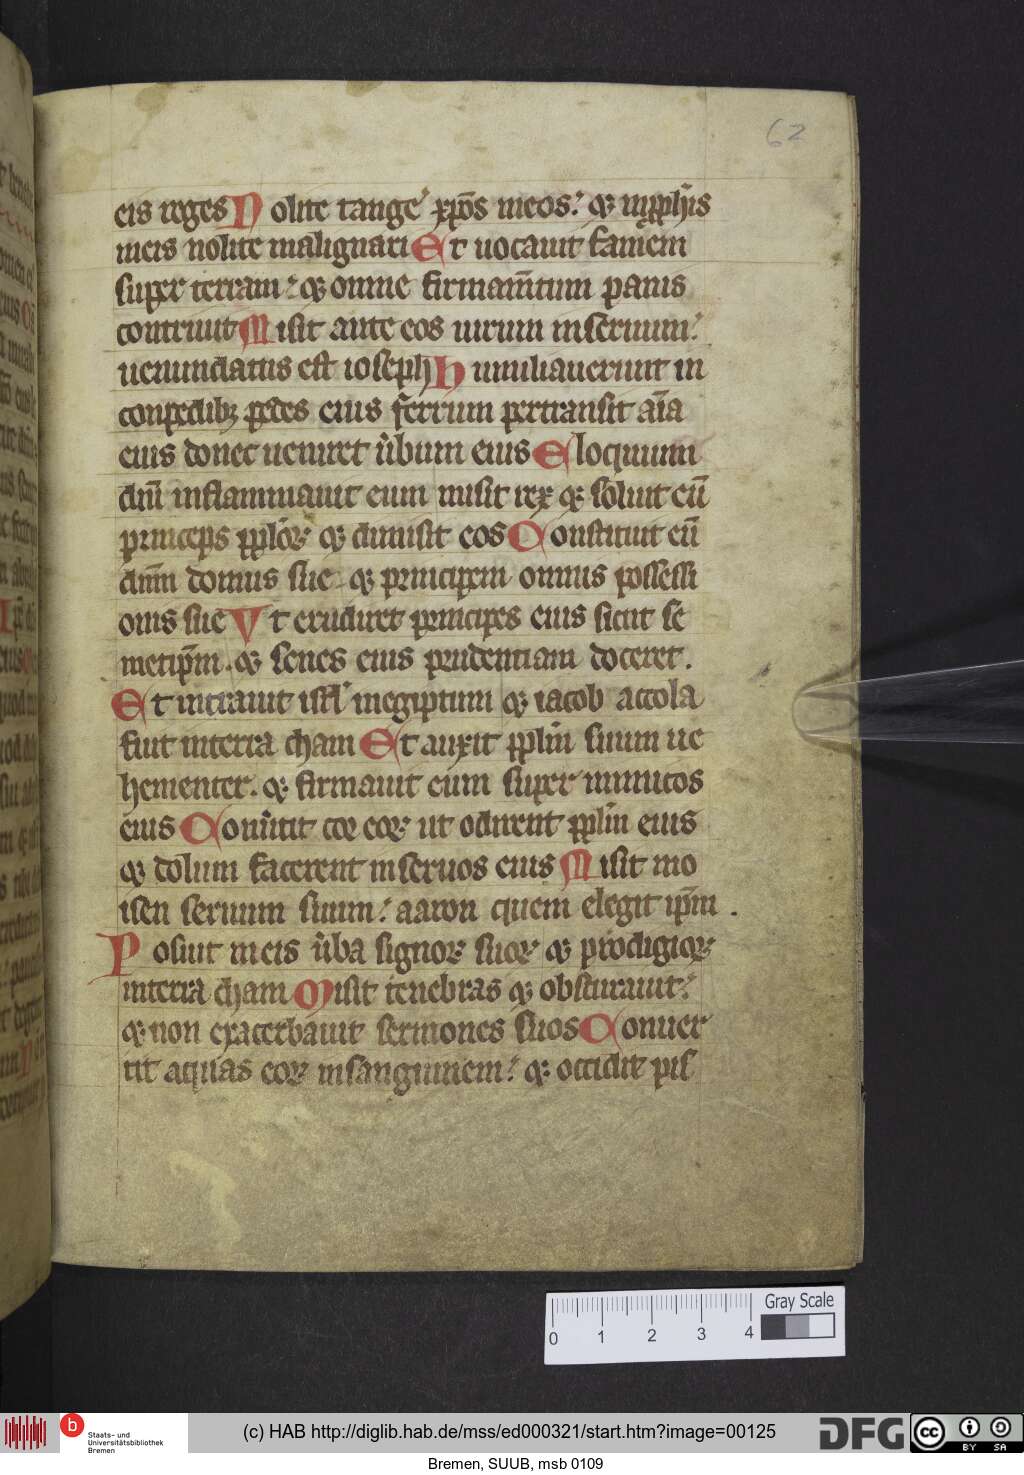 62
eis reges Nolite tange᷑ xp̄os meos : ꝫ in ꝓph̄is
meis nolite malignari Et uocauit famem
super terram : ꝫ omne firmam̄tum panis
contriuit Misit ante eos uirum in seruum :
uenundatus est ioseph Humiliauerunt in
conpedibꝫ pedes eius ferrum pertransit aīa
eius donec ueniret ūbum eius Eloquium
dn̄i inflammauit eum misit rex ꝫ soluit eū
princeps pplōꝝ ꝫ dimisit eos Constituit eū
dn̄m domus sue . ꝫ principem omnis possessi
onis sue Vt erudiret principes eius sicut se
metip̄m . ꝫ senes eius prudentiam doceret .
Et intrauit isrl̄ in egiptum ꝫ iacob accola
fuit in terra cham Et auxit pplm̄ suum ue
hementer . ꝫ firmauit eum super inimicos
eius Conūtit cor eoꝝ ut odirent pplm̄ eius
ꝫ dolum facerent in seruos eius Misit mo
isen seruum suum : aaron quem elegit ip̄m .
Posuit in eis ūba signoꝝ suoꝝ ꝫ prodigioꝝ
in terra cham Misit tenebras ꝫ obscurauit :
ꝫ non exacerbauit sermones suos Conuer
tit aquas eoꝝ in sanguinem : ꝫ occidit pis
Gray Scale
0 1 2 3 4
b Staats- und
Universitätsbibliothek
Bremen
(c) HAB http://diglib.hab.de/mss/ed000321/start.htm?image=00125
DFG
cc BY SA
Bremen, SUUB, msb 0109